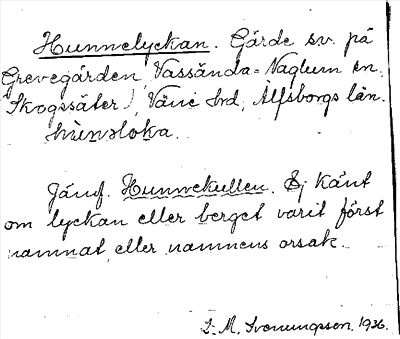 Hunnelyckan. Gärde sv. på
Grevegården, Vassända-Naglum sn.
Skogssäter), Väne hrd, Älfsborgs län.
hùnsloka.
Jämf. Hunnekullen. Ej känt
om lyckan eller berget varit först
namnat, eller namnens orsak.
S. M. Svenungsson. 1936.